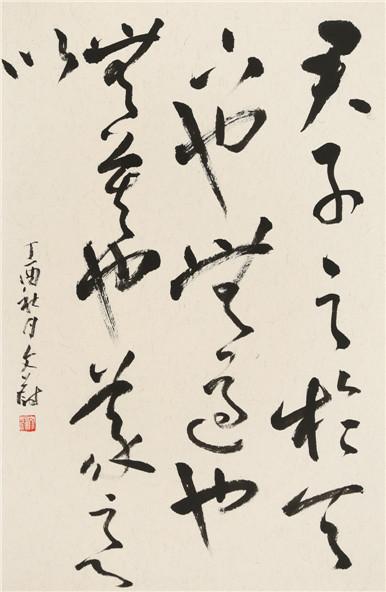 君子之於天
下也無適也
無莫也義之與
比
丁酉秋月文蔚